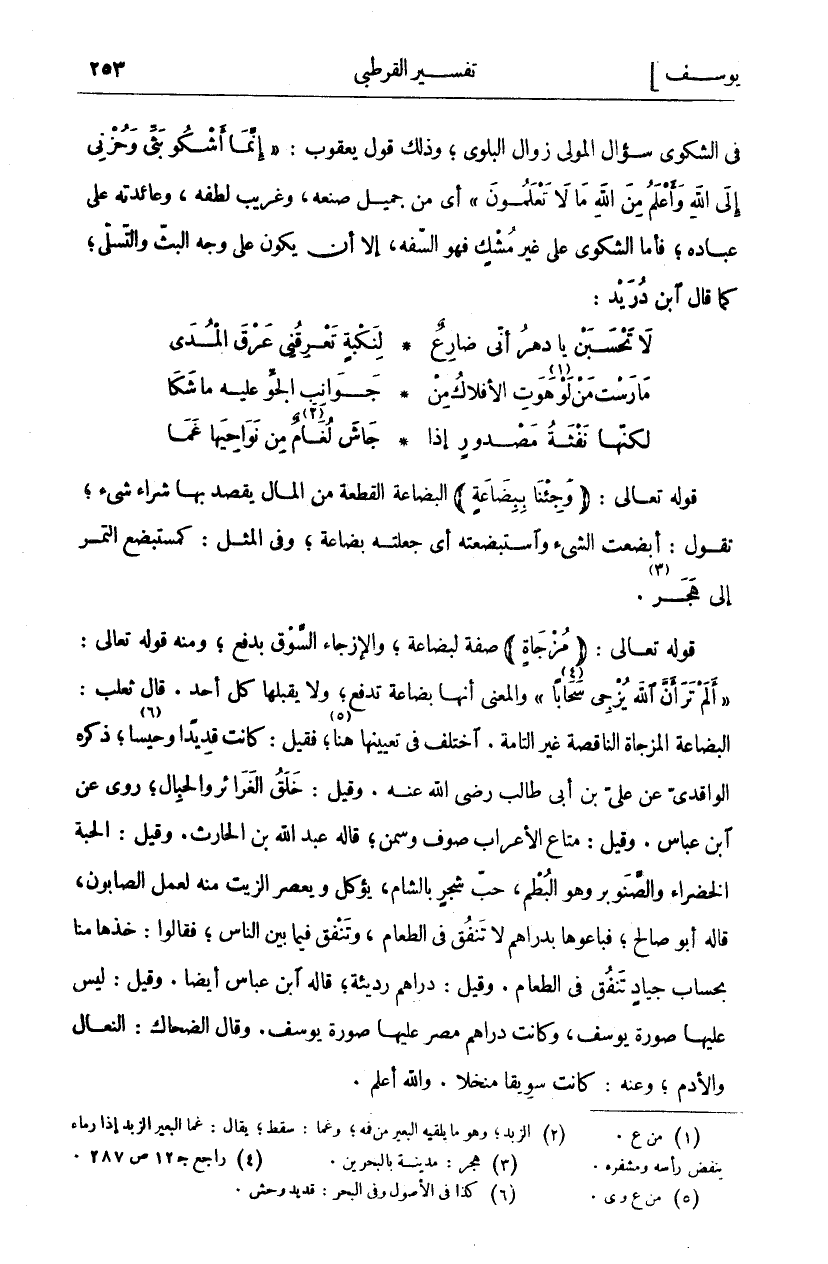 يوسف] تفسير القرطبى ٢٥٣
فى الشكوى سؤال المولى زوال البلوى ؛ وذلك قول يعقوب : « إِنَّمَا أَشْكُو بَثِّى وَحُزْنِى
إِلَى اللهِ وَأَعْلَمُ مِنَ اللهِ مَا لَا تَعْلَمُونَ » أى من جميل صنعه، وغريب لطفه ، وعائدته على
عباده ؛ فأما الشكوى على غير مُشْكٍ فهو السّفه، إلا أن يكون على وجه البثّ والتّسلّى ؛
كما قال ٱبن دُرَيْد :
لَا تَحْسَبَنْ يا دهرُ أنّى ضارِعٌ * لِنَكْبةٍ تَعْرِقُنِى عَرْقَ الْمُدَى
مَارَستَ مَنْ (١) لَوْ هَوَتِ الأفلاكُ مِنْ * جَوَانِب الجَوِّ عليه ما شَكَا
لكنّها نَفْثَةُ مَصْدورٍ إذا * جَاشَ لُغَامٌ (٢) مِن نَوَاحِيَها غَمَا
قوله تعالى : ﴿ وَجِئْنَا بِبِضَاعَةٍ ﴾ البضاعة القطعة من المال يقصد بها شراء شىء ؛
تقول : أبضعت الشىء وٱستبضعته أى جعلته بضاعة ؛ وفى المثل : كمستبضع التمر
إلى هَجَر (٣) .
قوله تعالى : ﴿ مُزْجَاةٍ ﴾ صفة لبضاعة ؛ والإزجاء السَّوْق بدفع ؛ ومنه قوله تعالى :
« أَلَمْ تَرَ أَنَّ ٱللهَ يُزْجِى سَحَابًا (٤) » والمعنى أنها بضاعة تدفع؛ ولا يقبلها كل أحد . قال ثعلب :
البضاعة المزجاة الناقصة غير التامة . ٱختلف فى تعيينها هنا (٥)؛ فقيل : كانت قديدًا وحيسا (٦)؛ ذكره
الواقدىّ عن علىّ بن أبى طالب رضى الله عنه . وقيل : خَلَقُ الغَرَائر والحِبال؛ روى عن
ٱبن عباس . وقيل : متاع الأعراب صوف وسمن؛ قاله عبد الله بن الحارث. وقيل : الحبة
الخضراء والصَّنَوبر وهو البُطْم، حبّ شجرٍ بالشام، يؤكل ويعصر الزيت منه لعمل الصابون،
قاله أبو صالح ؛ فباعوها بدراهم لا تَنفُق فى الطعام ، وتَنْفق فيما بين الناس ؛ فقالوا : خذها منا
بحساب جيادٍ تَنفُق فى الطعام . وقيل : دراهم رديئة؛ قاله ٱبن عباس أيضا . وقيل : ليس
عليها صورة يوسف، وكانت دراهم مصر عليها صورة يوسف. وقال الضحاك : النعال
والأدم ؛ وعنه : كانت سويقا منخلا . والله أعلم .
(١) من ع . (٢) الزبد؛ وهو ما يلقيه البعير من فه؛ وغما : سقط؛ يقال : غما البعير الزبد إذا رماه
ينفض رأسه ومشفره . (٣) هجر : مدينة بالبحرين . (٤) راجع جـ١٢ ص ٢٨٧ .
(٥) من ع وى . (٦) كذا فى الأصول وفى البحر : قديد وحش .